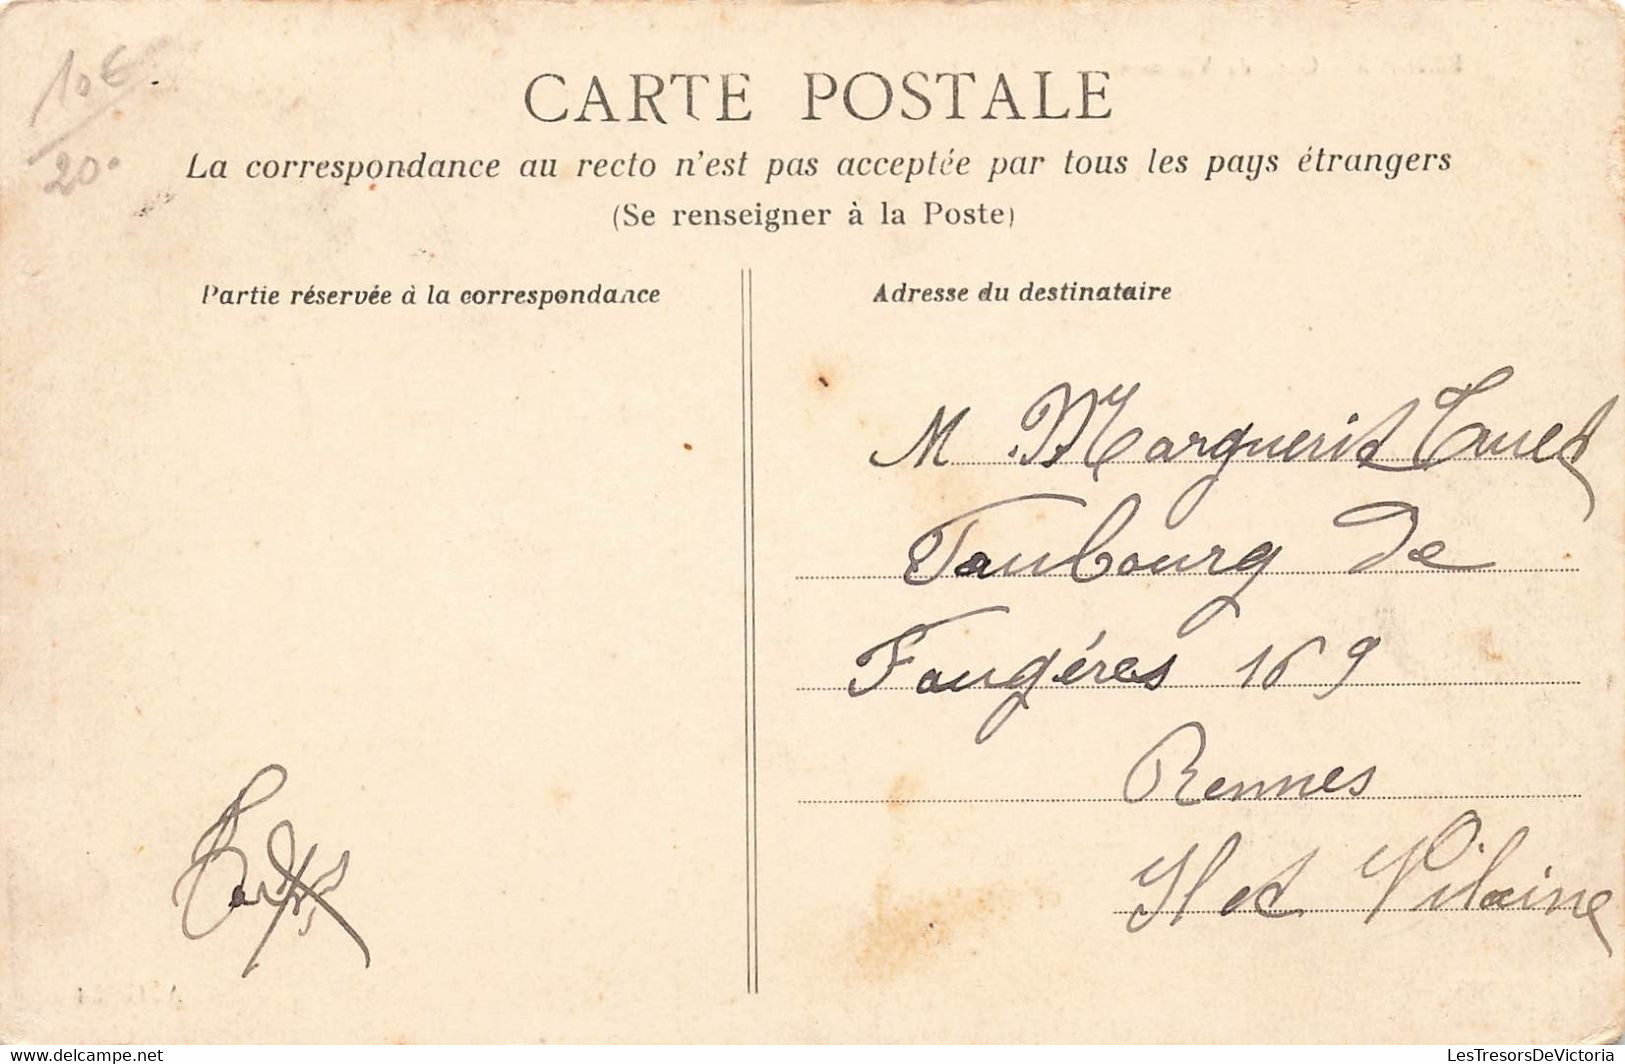 10€
20.
CARTE POSTALE
La correspondance au recto n'est pas acceptée par tous les pays étrangers
(Se renseigner à la Poste)
Partie réservée à la correspondance
Adresse du destinataire
M. Marguerit
Faubourg de
Fougéres 169
Rennes
Il et Vilaine
delcampe.net
LesTresorsDeVictoria